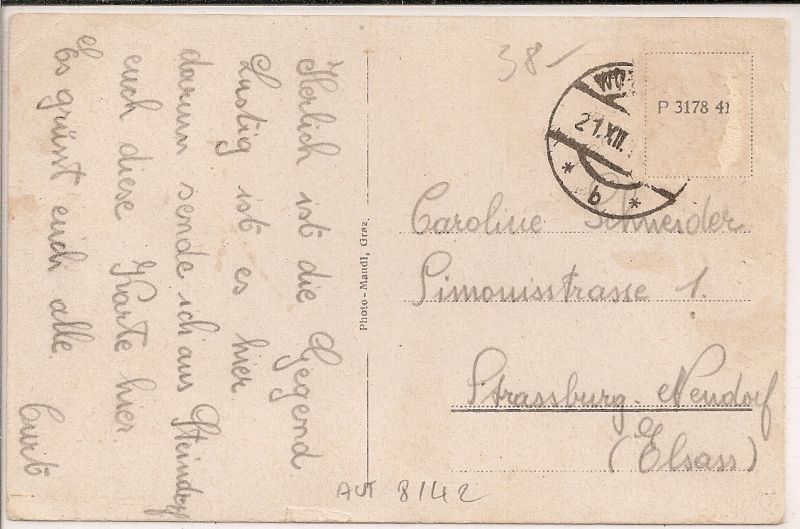 Herlich ist die Gegend
Lustig ist es hier
darum sende ich aus Steindorf
euch diese Karte hier.
Es grünt euch alle
Curt
Photo-Mandl, Graz.
38-
21.XII.
* b *
P 3178 41
Caroline Schneider
Simonisstrasse 1.
Strassburg-Neudorf
(Elsass)
AUT 8/42